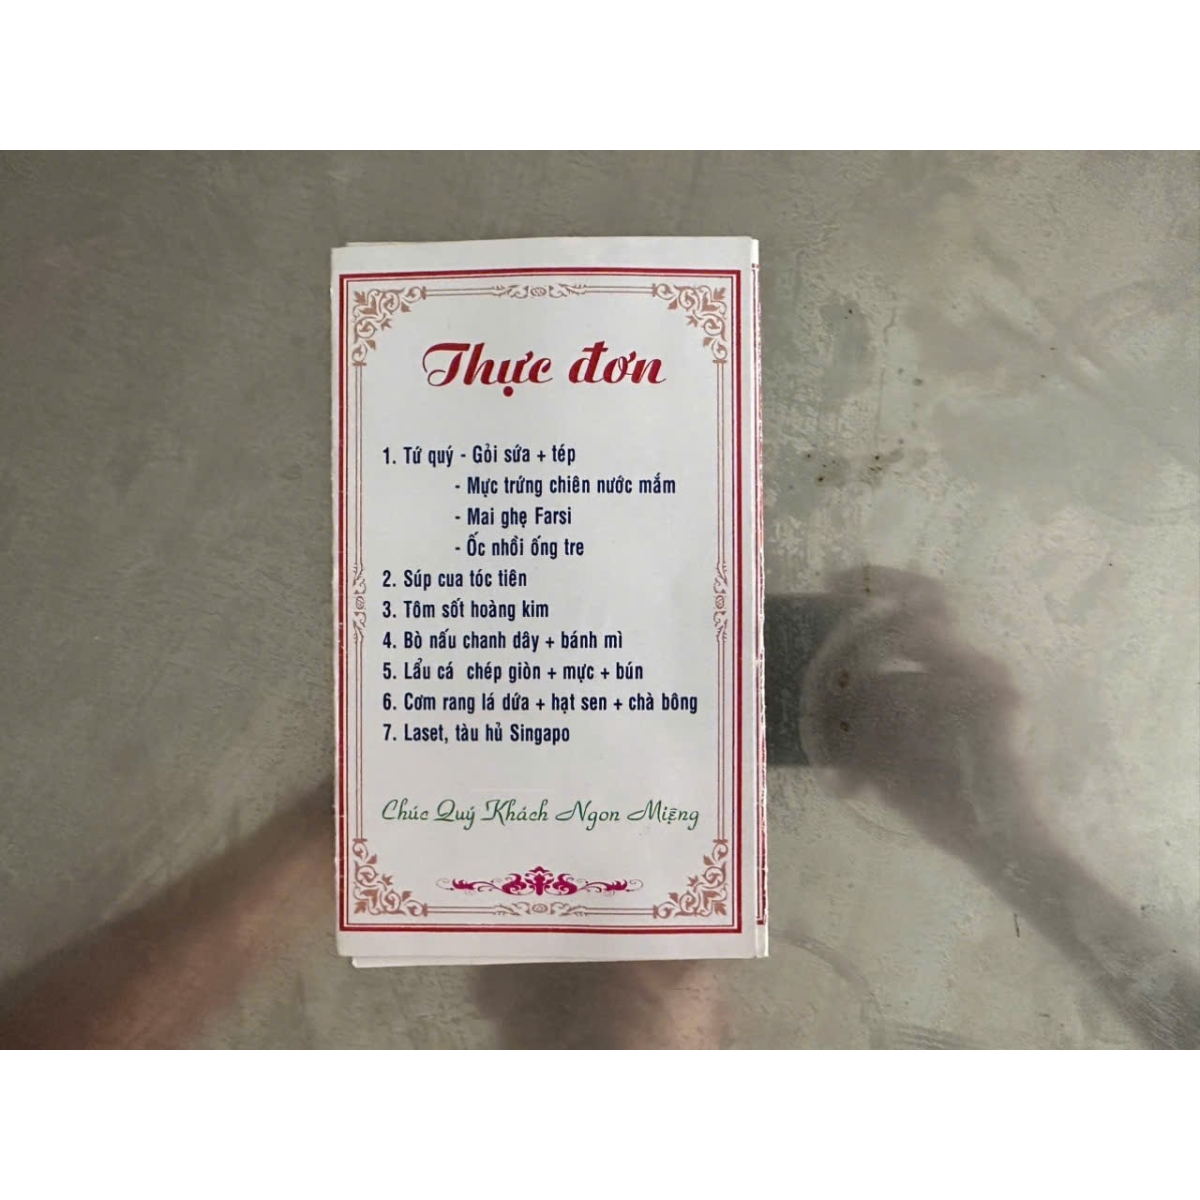 Thực đơn
1. Tứ quý - Gỏi sứa + tép
- Mực trứng chiên nước mắm
- Mai ghẹ Farsi
- Ốc nhồi ống tre
2. Súp cua tóc tiên
3. Tôm sốt hoàng kim
4. Bò nấu chanh dây + bánh mì
5. Lẩu cá chép giòn + mực + bún
6. Cơm rang lá dứa + hạt sen + chà bông
7. Laset, tàu hủ Singapo
Chúc Quý Khách Ngon Miệng